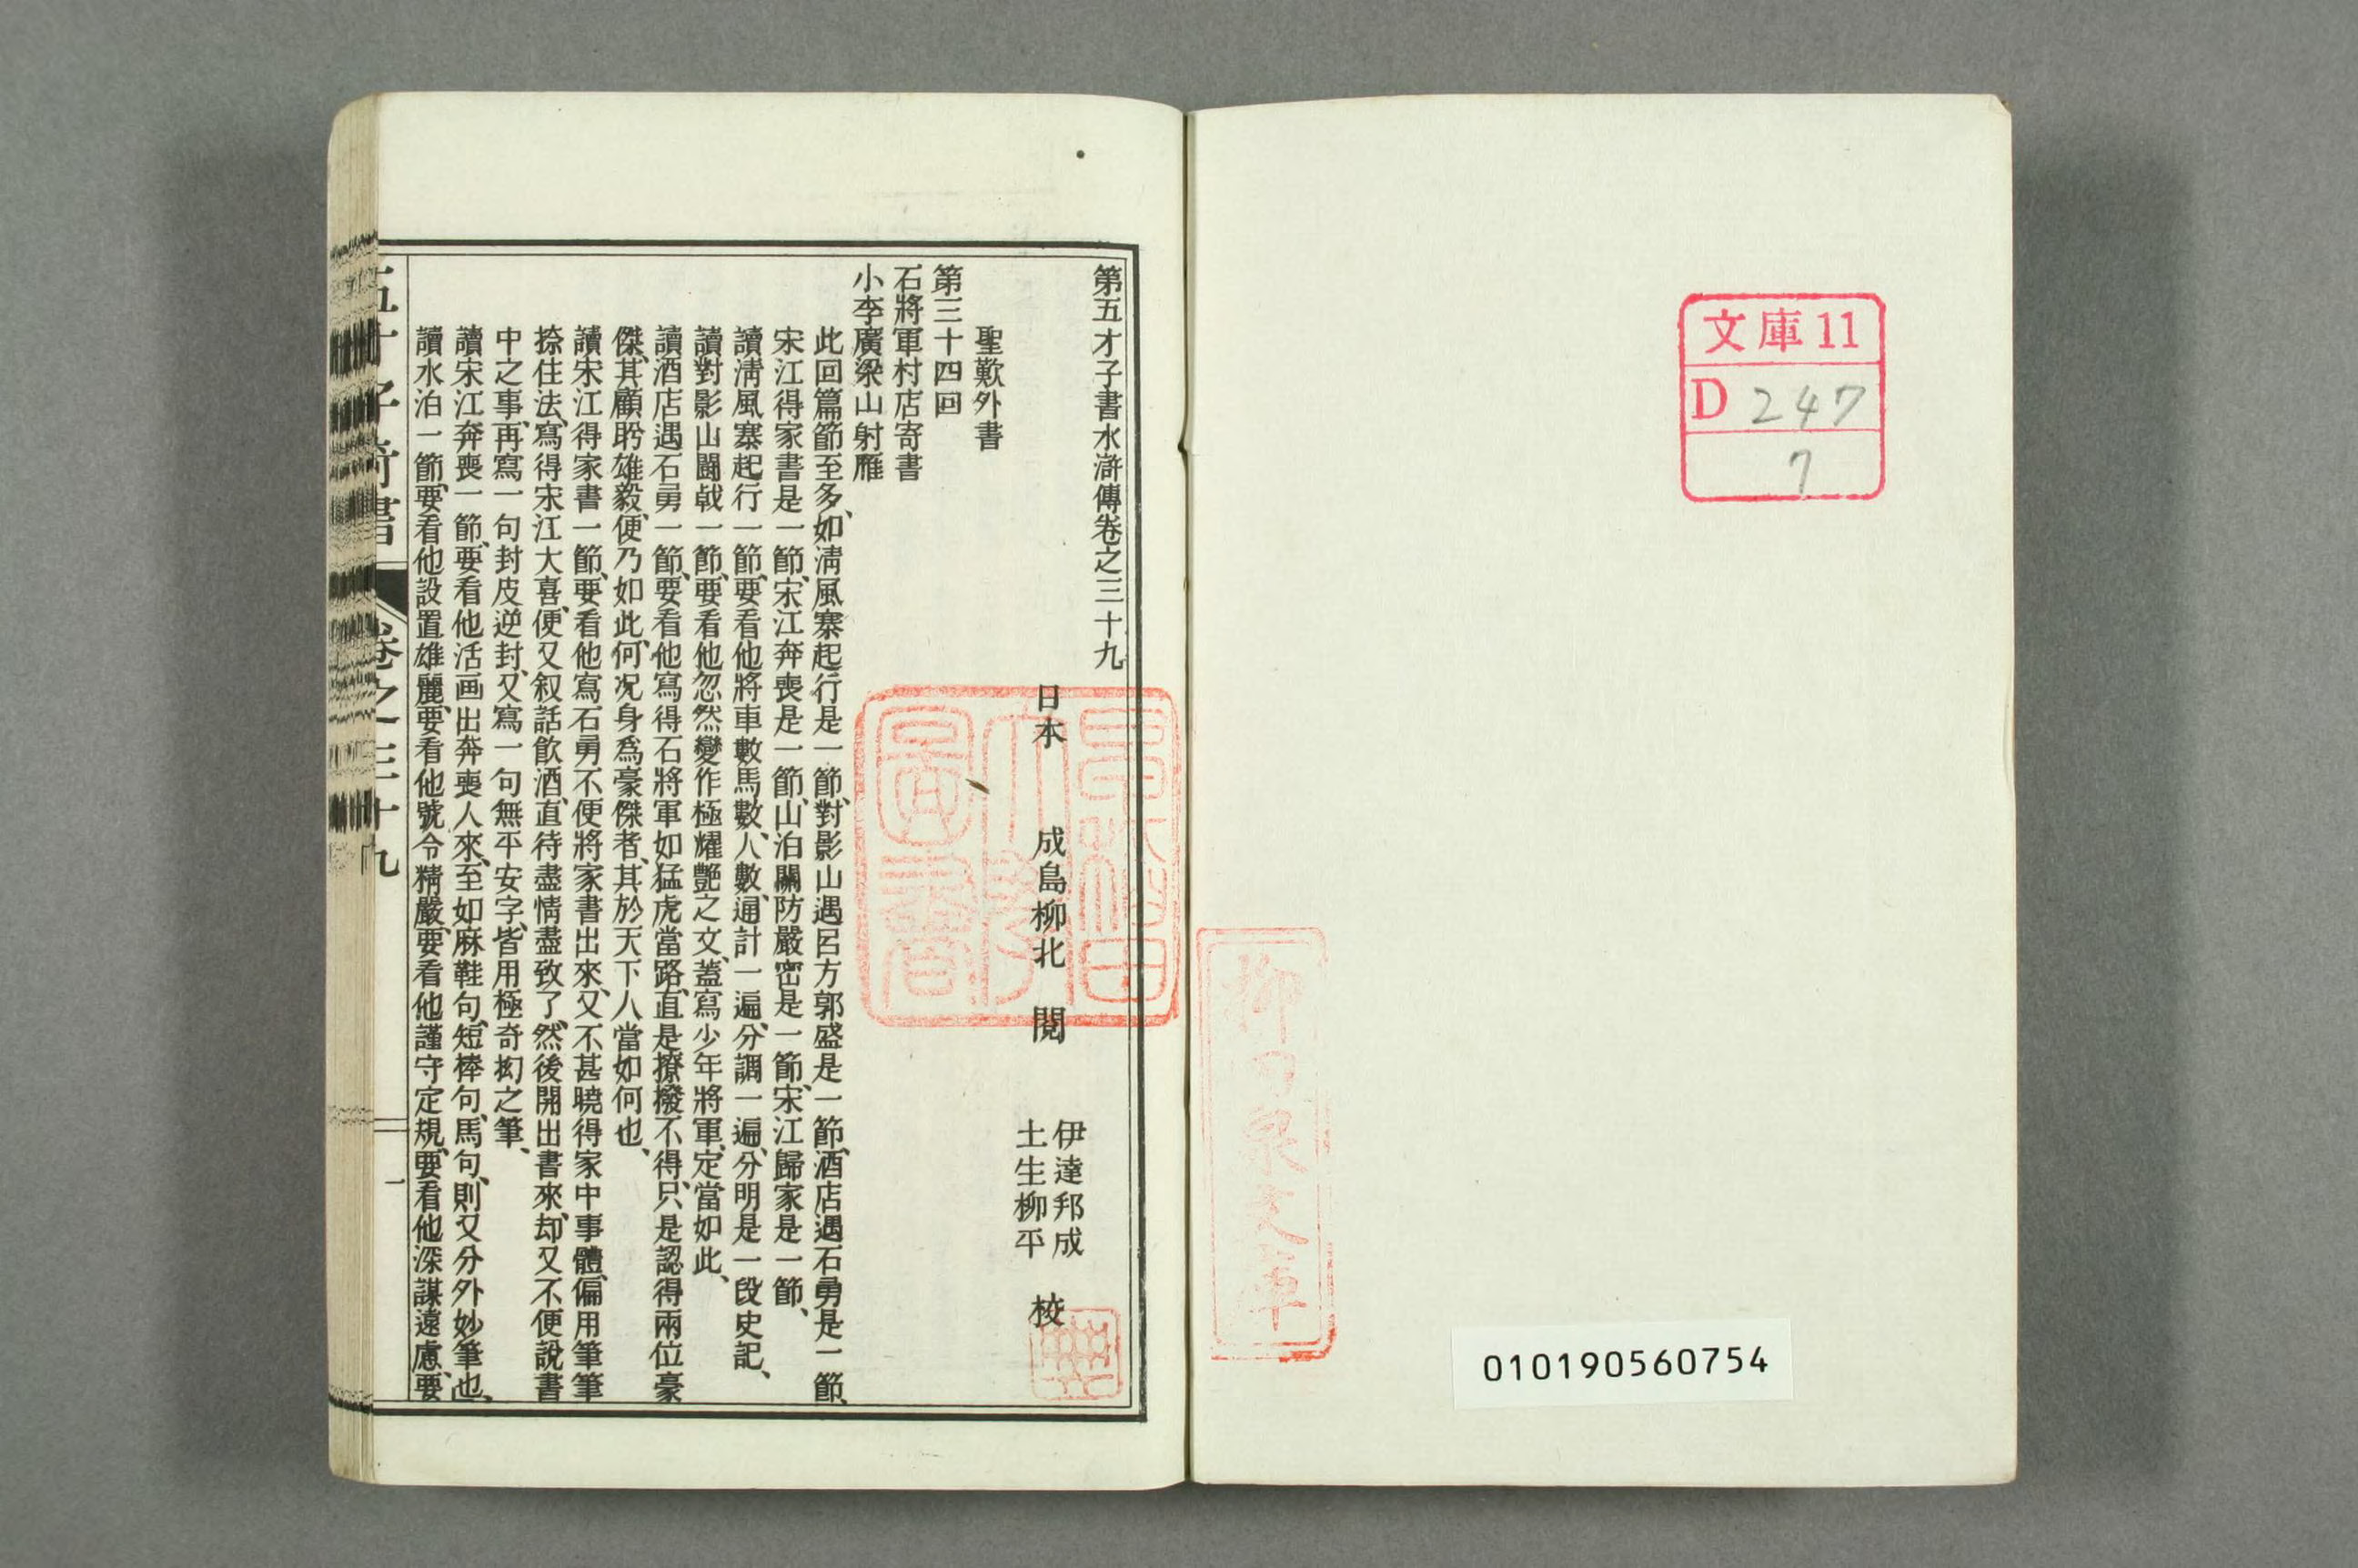 文庫11
D 247
7
柳田泉文庫
010190560754
第五才子書水滸傳卷之三十九
日本 成島柳北 閱
伊達邦成
土生柳平 校
早稲田大學圖書
聖歎外書
第三十四回
石將軍村店寄書
小李廣梁山射雁
此回篇節至多、如淸風寨起行是一節、對影山遇呂方郭盛是一節、酒店遇石勇是一節、
宋江得家書是一節、宋江奔喪是一節、山泊關防嚴密是一節、宋江歸家是一節、
讀淸風寨起行一節、要看他將車數馬數、人數、通計一遍、分調一遍、分明是一段史記、
讀對影山鬪戟一節、要看他忽然變作極耀艷之文、蓋寫少年將軍、定當如此、
讀酒店遇石勇一節、要看他寫得石將軍如猛虎當路、直是撩撥不得、只是認得兩位豪
傑、其顧盻雄毅、便乃如此、何况身爲豪傑者、其於天下人當如何也、
讀宋江得家書一節、要看他寫石勇不便將家書出來、又不甚曉得家中事體、偏用筆筆
捺住法、寫得宋江大喜、便又叙話飮酒、直待盡情盡致了、然後開出書來、却又不便說書
中之事、再寫一句封皮逆封、又寫一句無平安字、皆用極奇抝之筆、
讀宋江奔喪一節、要看他活画出奔喪人來、至如麻鞋句、短棒句、馬句、則又分外妙筆也、
讀水泊一節、要看他設置雄麗、要看他號令精嚴、要看他謹守定規、要看他深謀遠慮、要
卷之三十九
一